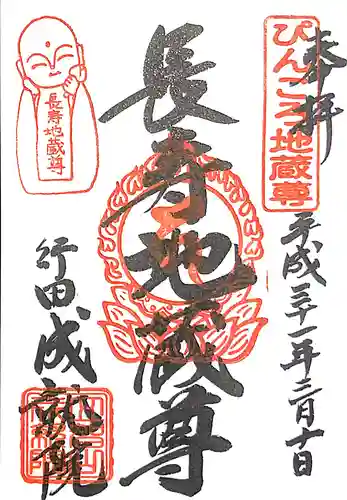 奉拝
ぴんころ地蔵尊
平成三十一年二月十日
長寿地蔵尊
長寿地蔵尊
行田成就院